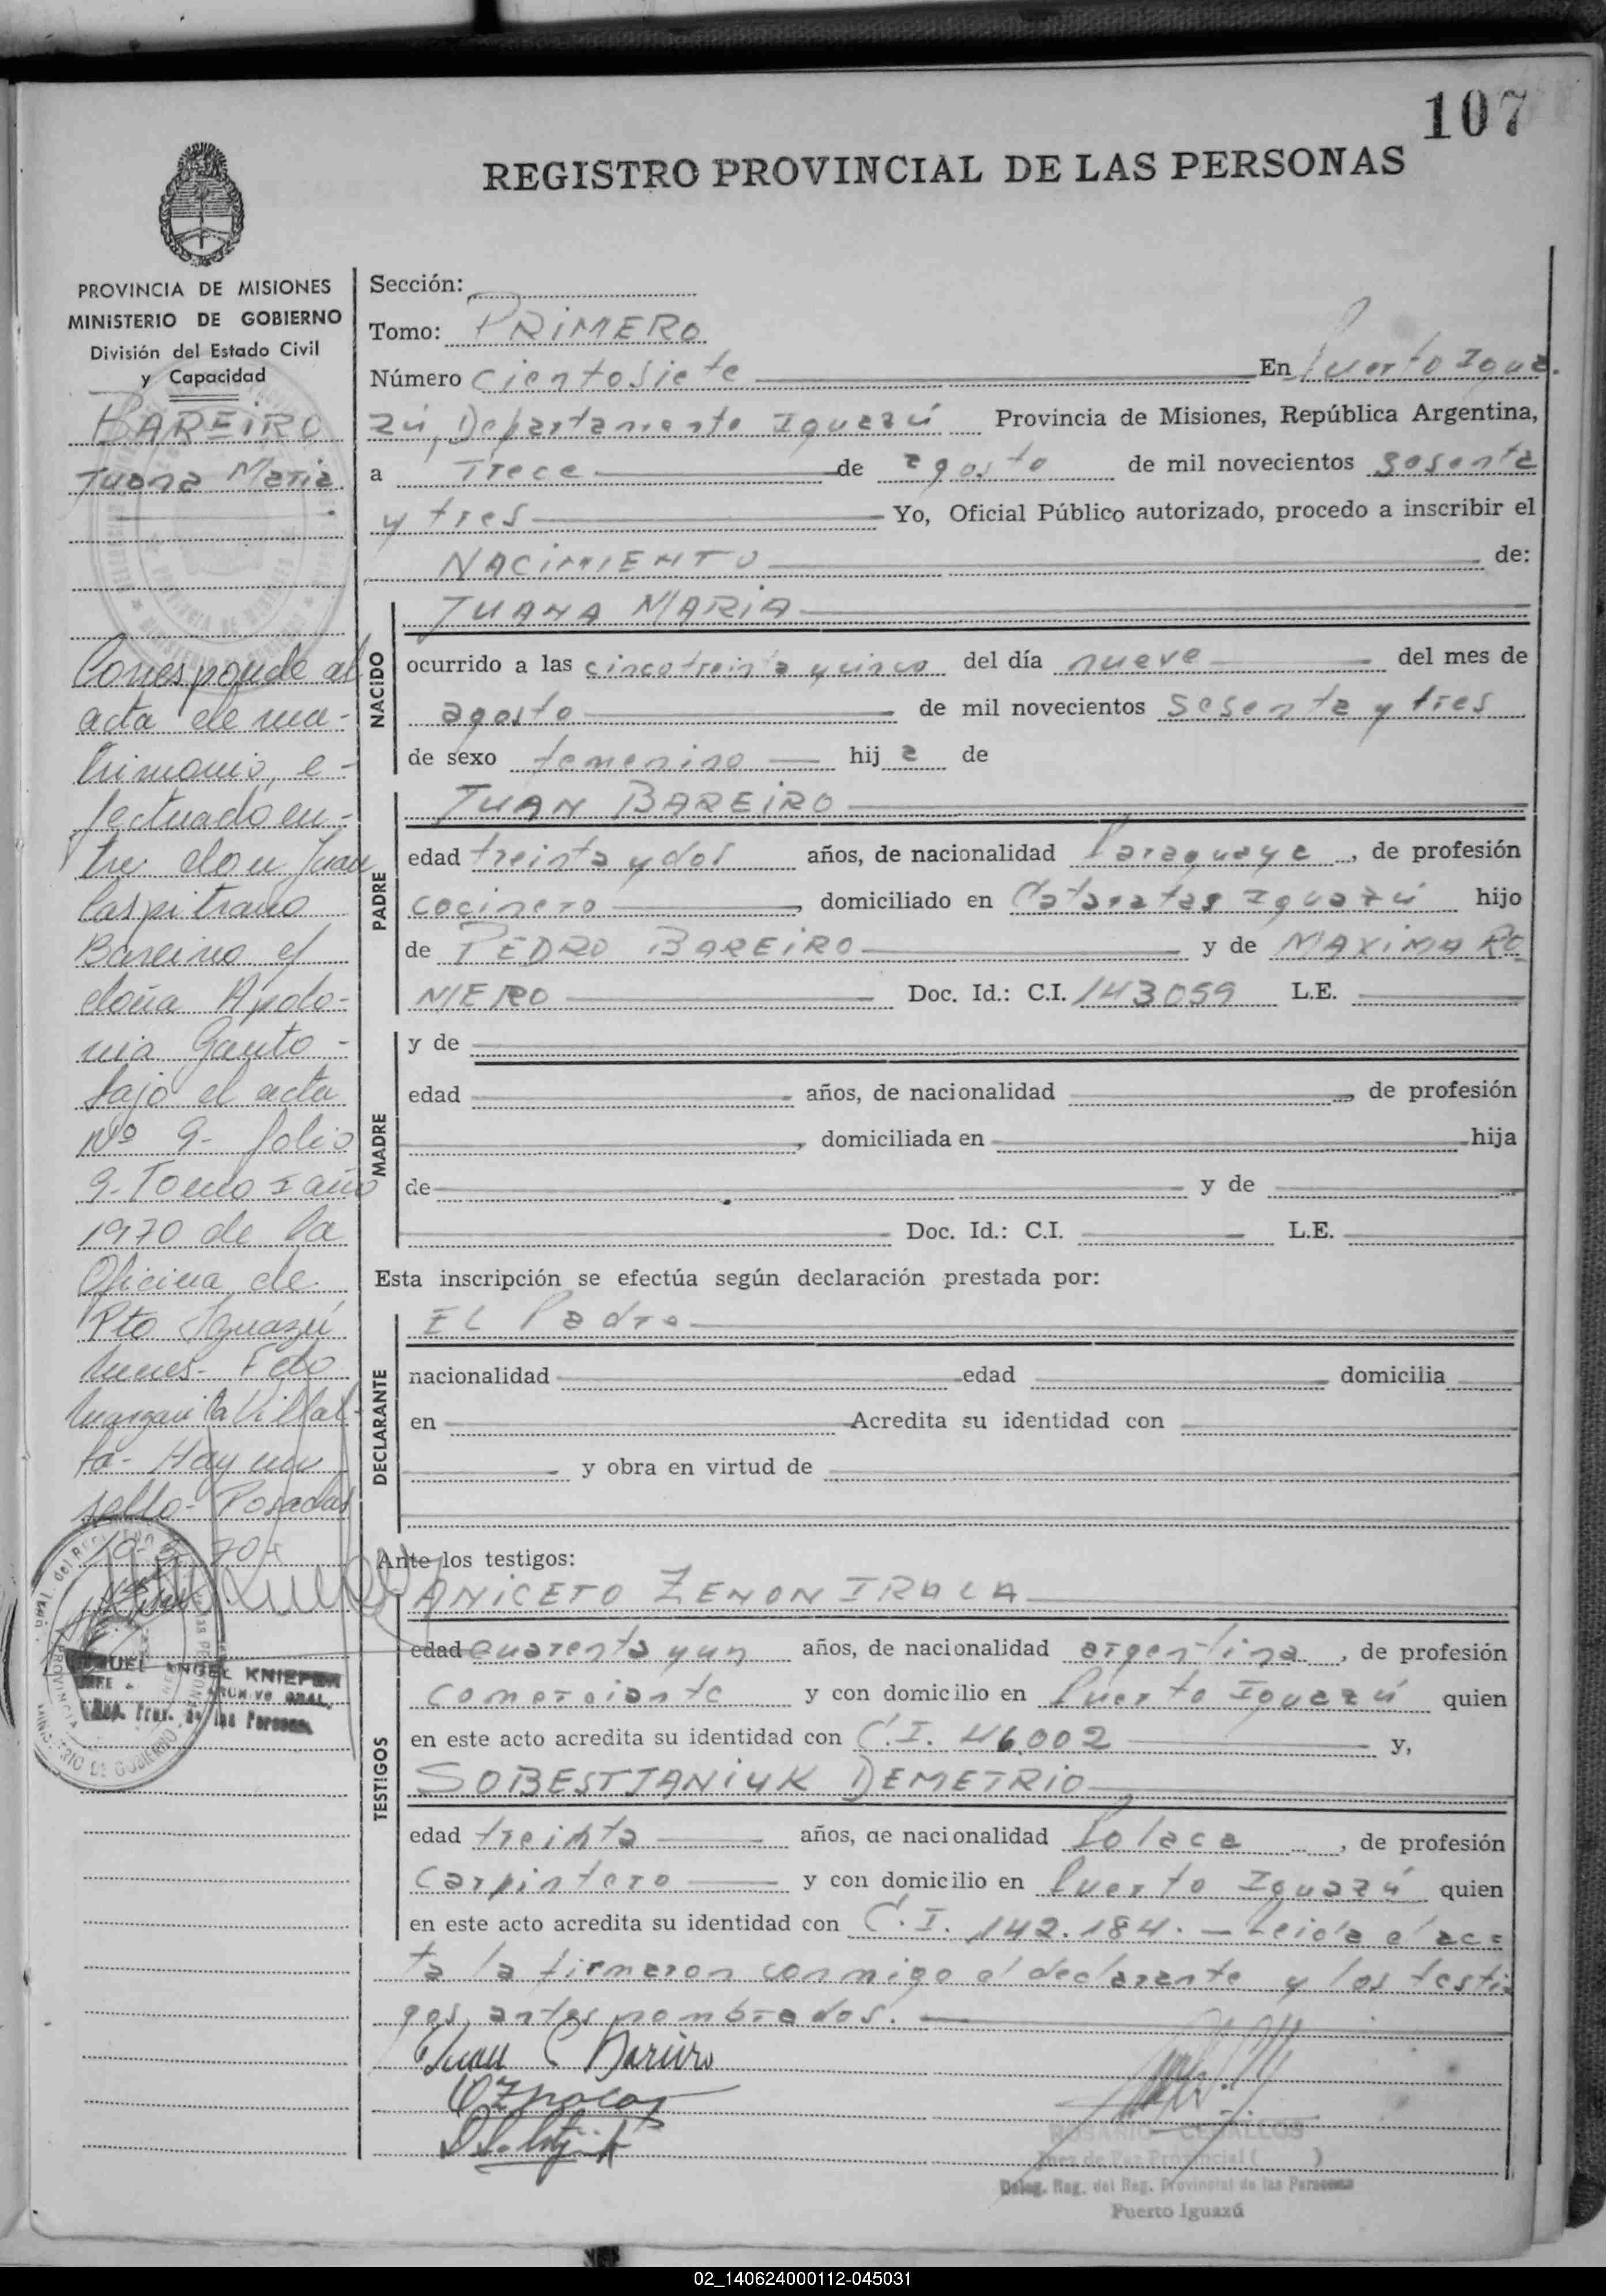 107
REGISTRO PROVINCIAL DE LAS PERSONAS
PROVINCIA DE MISIONES
MINISTERIO DE GOBIERNO
División del Estado Civil
y Capacidad
BAREIRO
Juana Maria
Corresponde al
acta de ma-
trimonio, e-
fectuado en-
tre don Juan
Caspitrano
Bareiro y
doña Apolo-
nia Gauto -
bajo el acta
nº 9- folio
9- Tomo I año
1970 de la
Oficina de
Pto Iguazú
Mnes- Fdo
Margarita Villal-
ba- Hay un
sello- Posadas
10-3-70-
ANGEL KNIEPER
JEFE ARCHIVO GRAL.
Reg. Prov. de las Personas
Sección:
Tomo: PRIMERO
Número Cientosiete En Puerto Igua
zú, Departamento Iguazú Provincia de Misiones, República Argentina,
a Trece de agosto de mil novecientos sesenta
y tres Yo, Oficial Público autorizado, procedo a inscribir el
NACIMIENTO de:
NACIDO
JUANA MARIA
ocurrido a las cinco treinta y cinco del día nueve del mes de
agosto de mil novecientos sesenta y tres
de sexo femenino hij a de
PADRE
JUAN BAREIRO
edad treinta y dos años, de nacionalidad Paraguaya, de profesión
cocinero, domiciliado en Cataratas Iguazú hijo
de PEDRO BAREIRO y de MAXIMA RO
MERO Doc. Id.: C.I. 143059 L.E.
MADRE
y de
edad años, de nacionalidad, de profesión
, domiciliada en hija
de y de
Doc. Id.: C.I. L.E.
Esta inscripción se efectúa según declaración prestada por:
DECLARANTE
EL Padre
nacionalidad edad domicilia
en Acredita su identidad con
y obra en virtud de
Ante los testigos:
TESTIGOS
ANICETO ZENON IRALA
edad cuarenta y un años, de nacionalidad argentina, de profesión
comerciante y con domicilio en Puerto Iguazú quien
en este acto acredita su identidad con C.I. 46.002 y,
SOBESTJANIUK DEMETRIO
edad treinta años, de nacionalidad Polaca, de profesión
Carpintero y con domicilio en Puerto Iguazú quien
en este acto acredita su identidad con C.I. 142.184. - Leida el ac=
ta la firmaron conmigo el declarante y los testi
gos antes nombrados.
Juan C Bareiro
ROSARIO CEBALLOS
Juez de Paz Provincial ( )
Deleg. Reg. del Reg. Provincial de las Personas
Puerto Iguazú
02_140624000112-045031